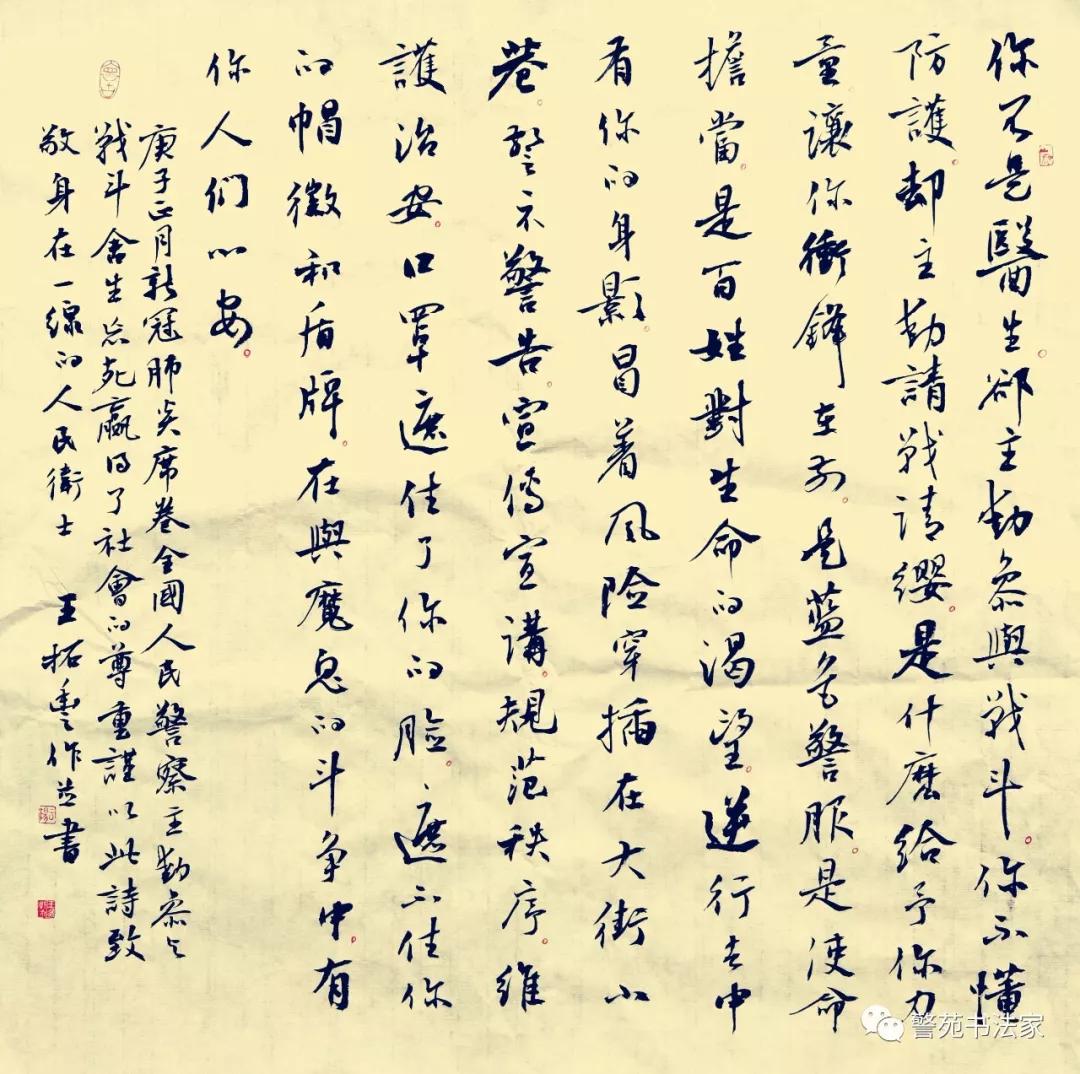 你不是醫生。卻主動參與戰斗。你不懂
防護。却主動請戰请纓。是什麽給予你力
量讓你衝鋒在前。是藍色警服。是使命
擔當。是百姓對生命的渴望。逆行者中
有你的身影。冒着风险穿插在大街小
巷。警示警告。宣傳宣講。規范秩序。維
護治安。口罩遮住了你的脸、遮不住你
的帽徽和盾牌。在與魔的斗争中。有
你人們心安。
庚子正月新冠肺炎席卷全國人民警察主動參与
戰斗舍生忘死贏得了社會的尊重謹以此詩致
敬身在一線的人民衛士 王拓作並書
警苑书法家